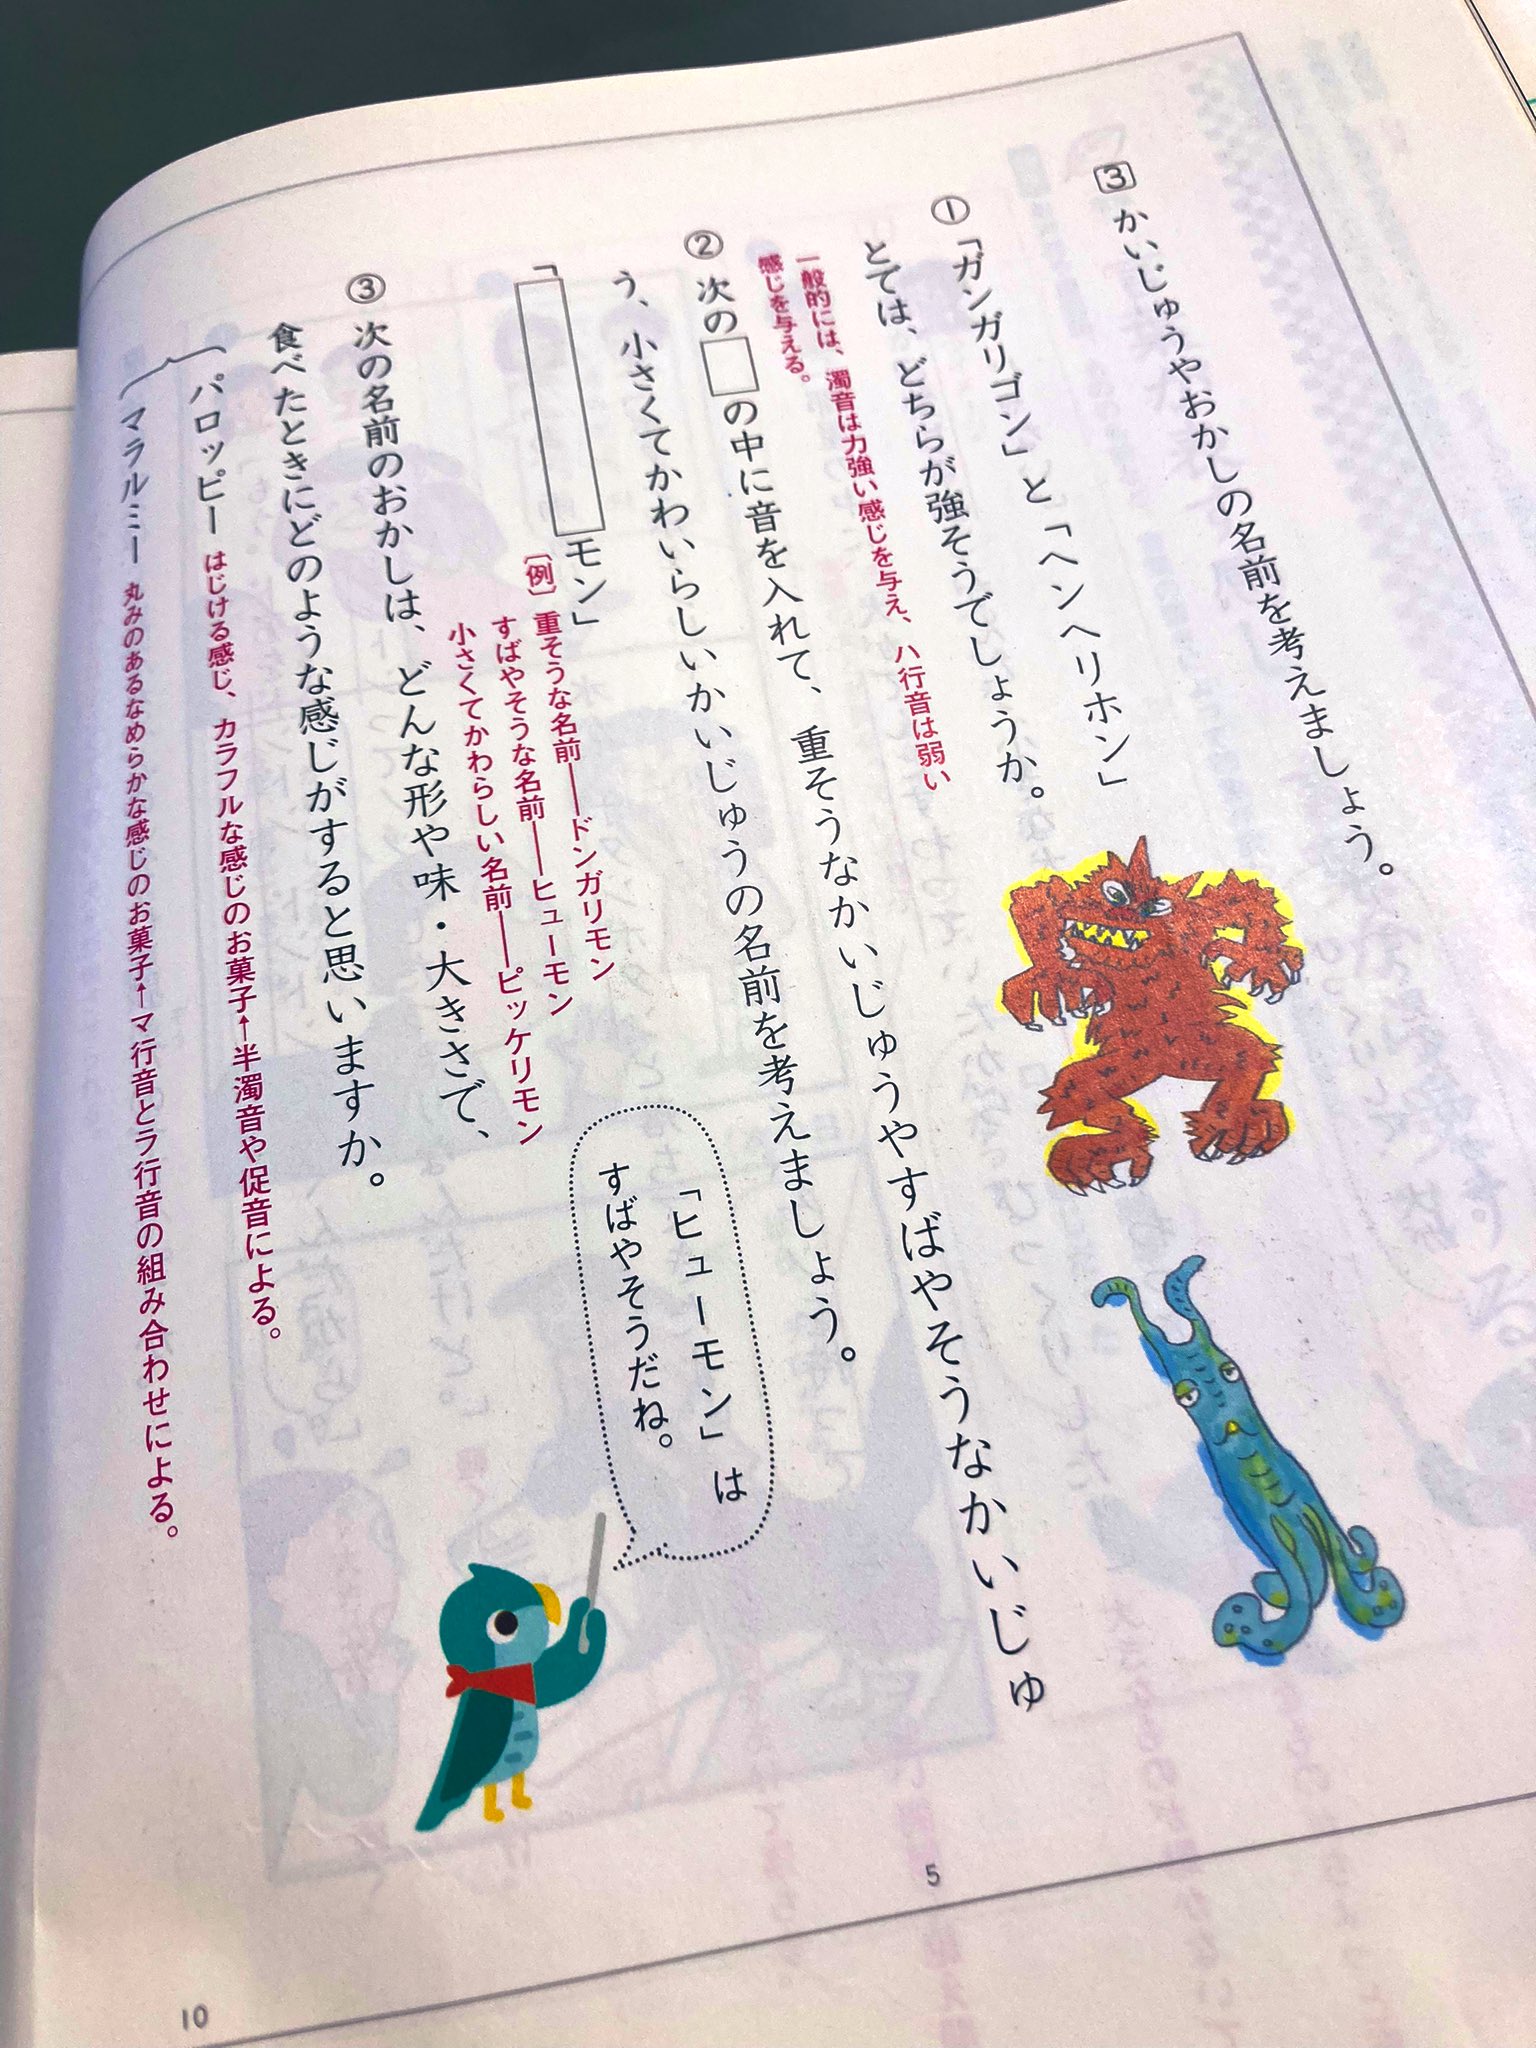 3 かいじゅうやおかしの名前を考えましょう。
① 「ガンガリゴン」と「ヘンヘリホン」
とでは、どちらが強そうでしょうか。
一般的には、濁音は力強い感じを与え、ハ行音は弱い
感じを与える。
② 次の□の中に音を入れて、重そうなかいじゅうやすばやそうなかいじゅ
う、小さくてかわいらしいかいじゅうの名前を考えましょう。
「□モン」
〔例〕重そうな名前――ドンガリモン
すばやそうな名前――ヒューモン
小さくてかわらしい名前――ピッケリモン
「ヒューモン」は
すばやそうだね。
③ 次の名前のおかしは、どんな形や味・大きさで、
食べたときにどのような感じがすると思いますか。
パロッピー はじける感じ、カラフルな感じのお菓子←半濁音や促音による。
マラルミー 丸みのあるなめらかな感じのお菓子←マ行音とラ行音の組み合わせによる。
5
10